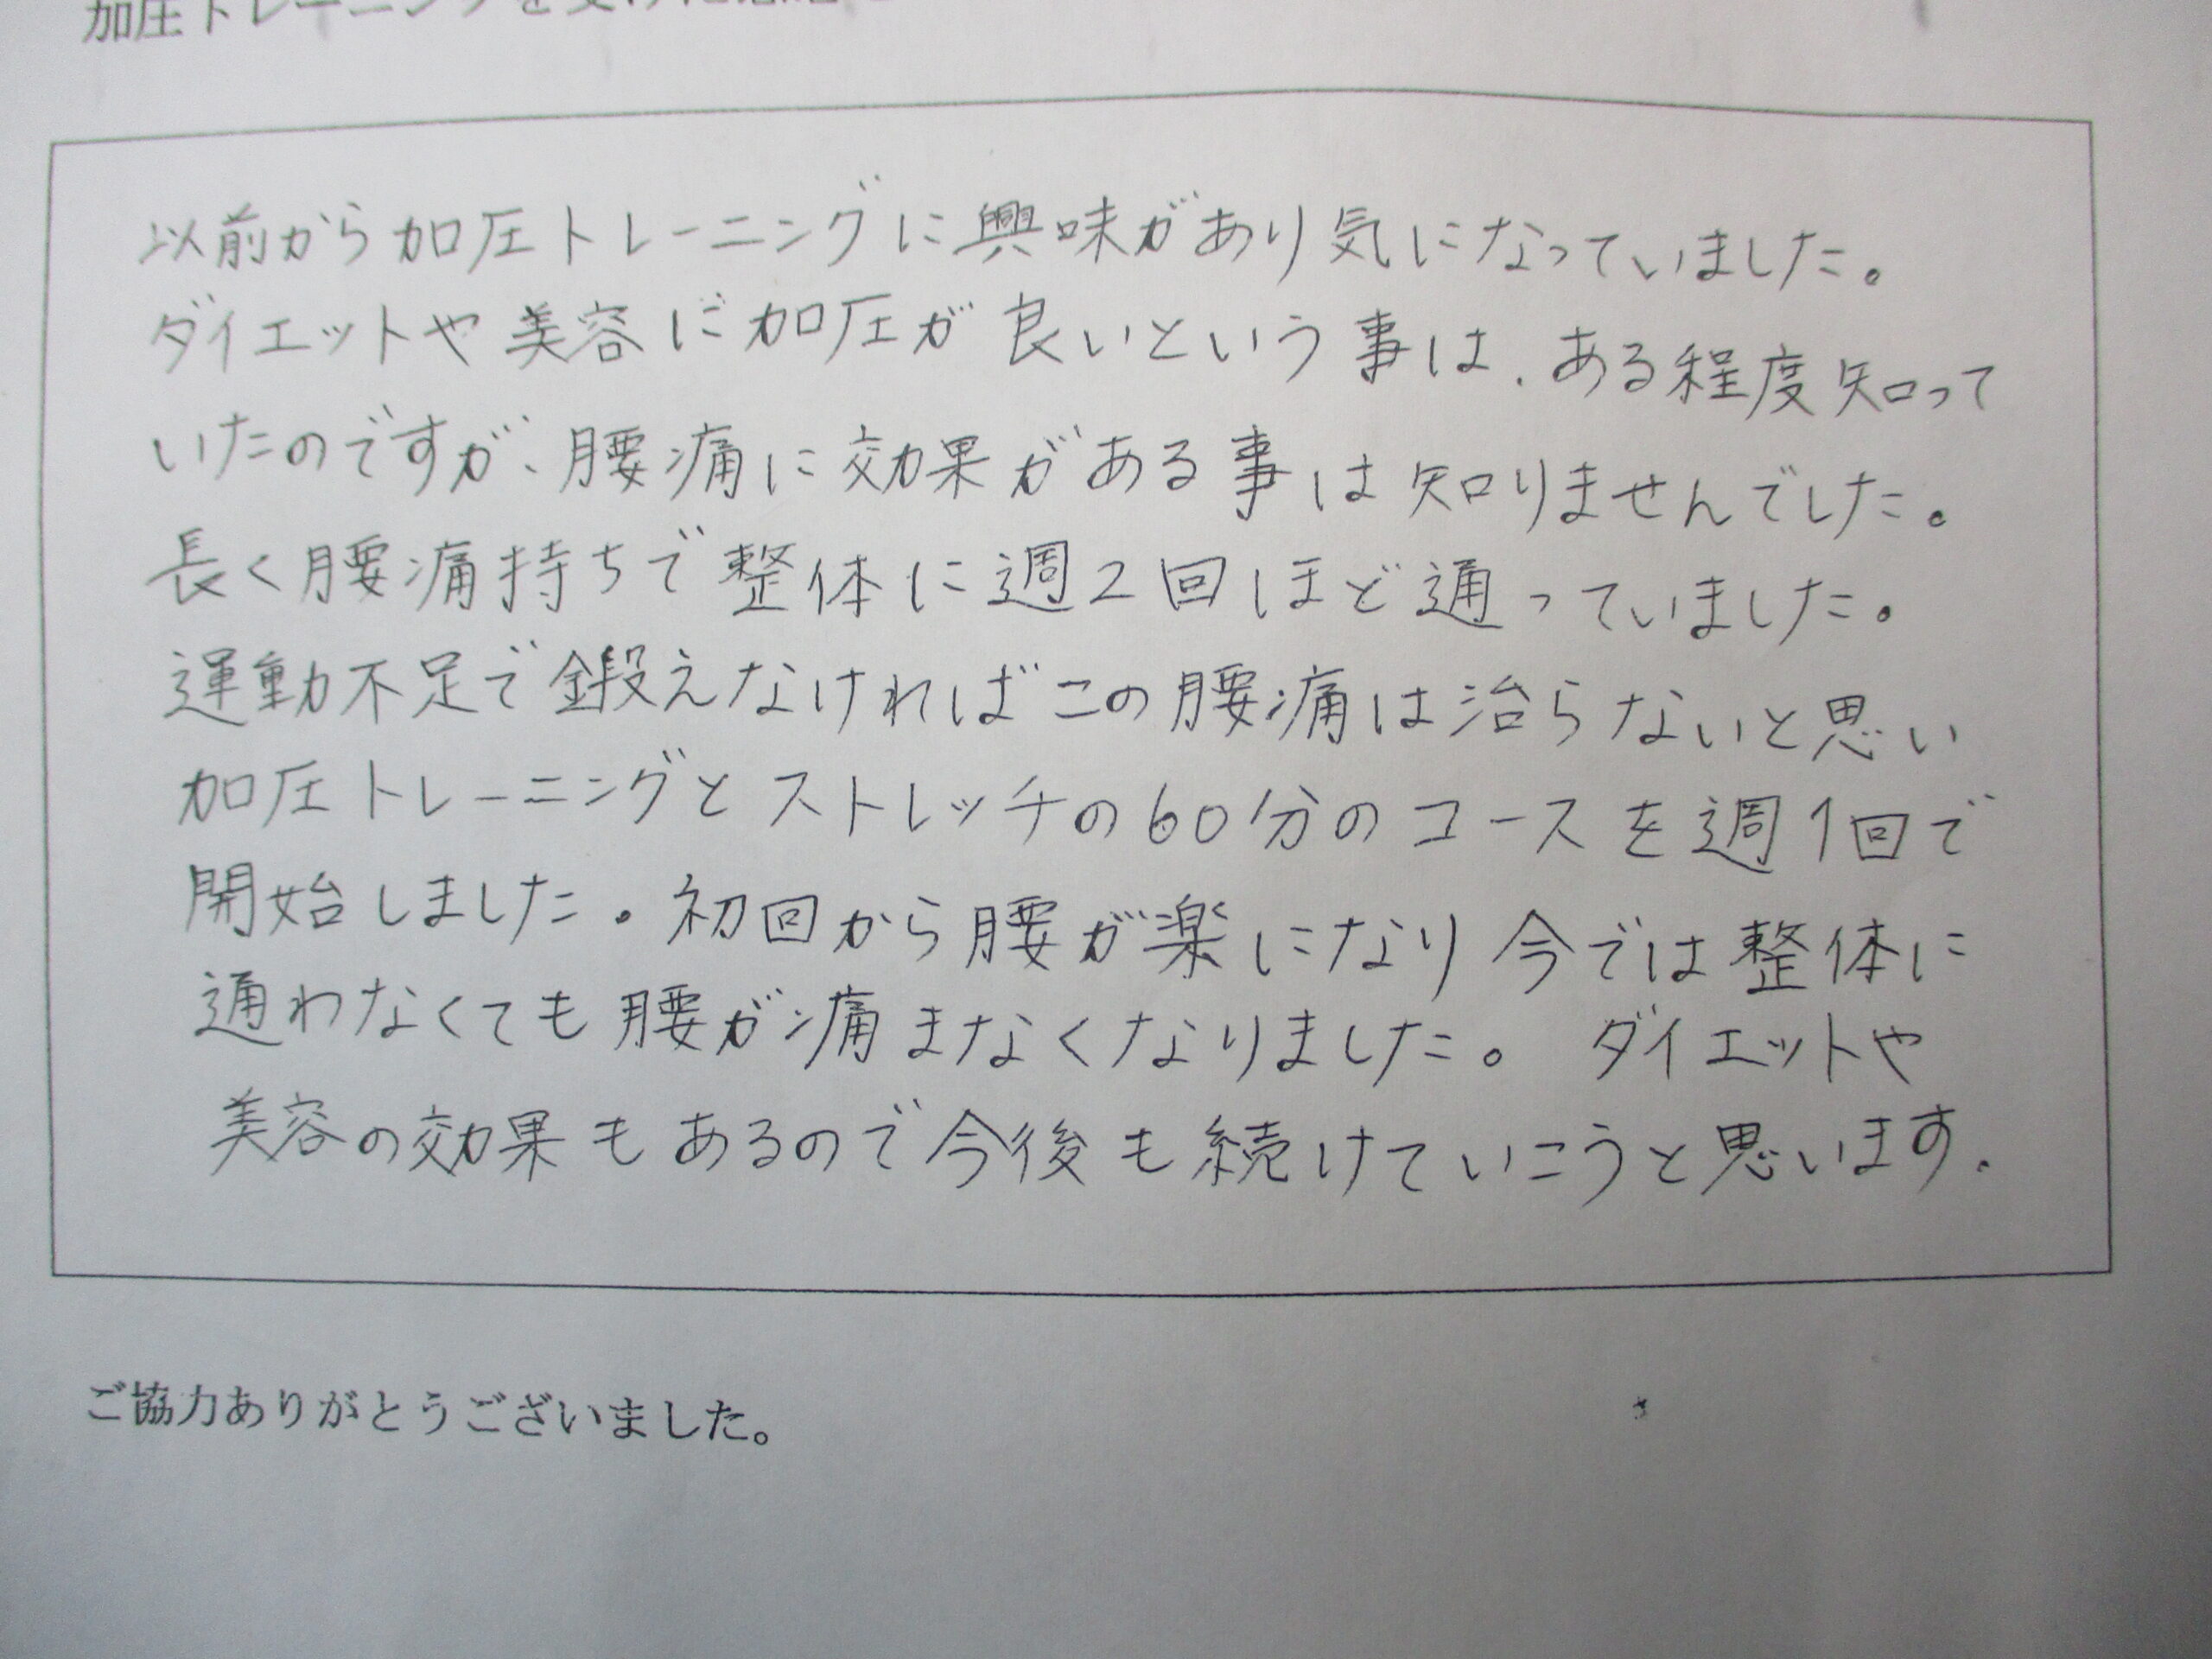 加圧トレーニングを受けた
以前から加圧トレーニングに興味があり気になっていました。
ダイエットや美容に加圧が良いという事は、ある程度知って
いたのですが、腰痛に効果がある事は知りませんでした。
長く腰痛持ちで整体に週2回ほど通っていました。
運動不足で鍛えなければこの腰痛は治らないと思い
加圧トレーニングとストレッチの60分のコースを週1回で
開始しました。初回から腰が楽になり今では整体に
通わなくても腰が痛まなくなりました。 ダイエットや
美容の効果もあるので今後も続けていこうと思います.
ご協力ありがとうございました。